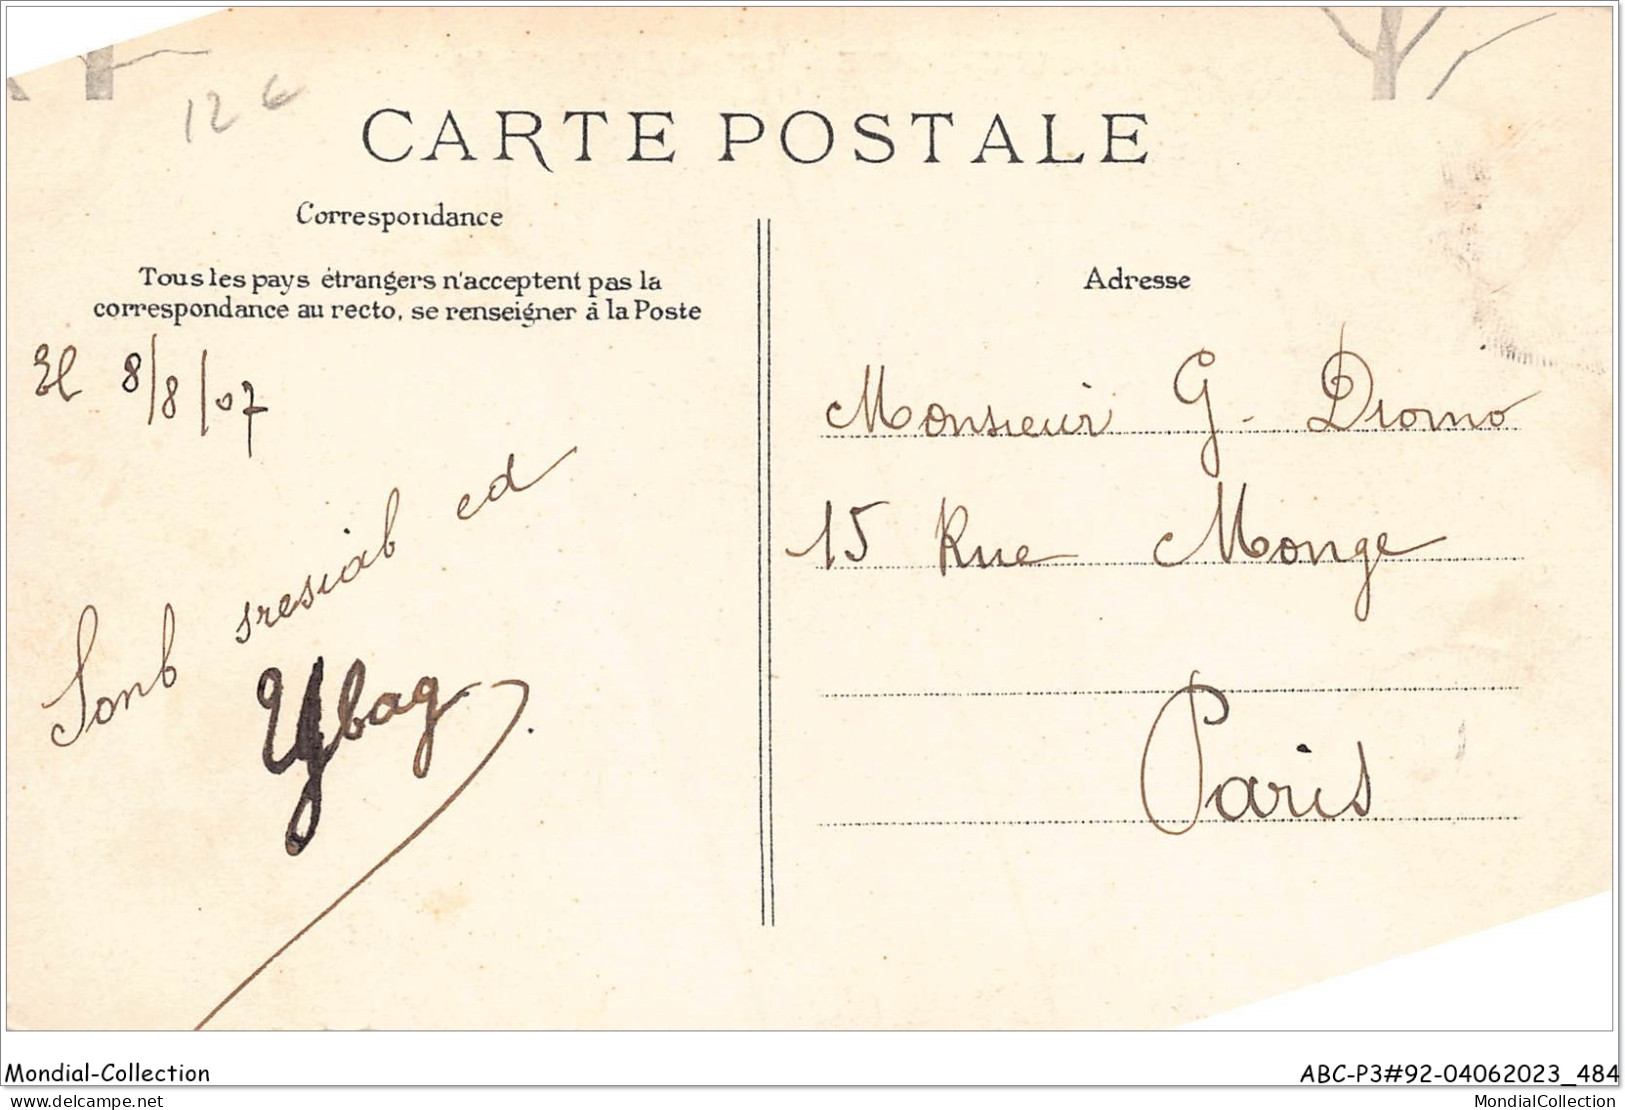 12 €
CARTE POSTALE
Correspondance
Tous les pays étrangers n'acceptent pas la
correspondance au recto, se renseigner à la Poste
El 8/8/07
Sonb sresiab ed
Ybag
Adresse
Monsieur G. Diomo
15 Rue Monge
Paris
Mondial-Collection
ABC-P3#92-04062023_484
delcampe.net
MondialCollection